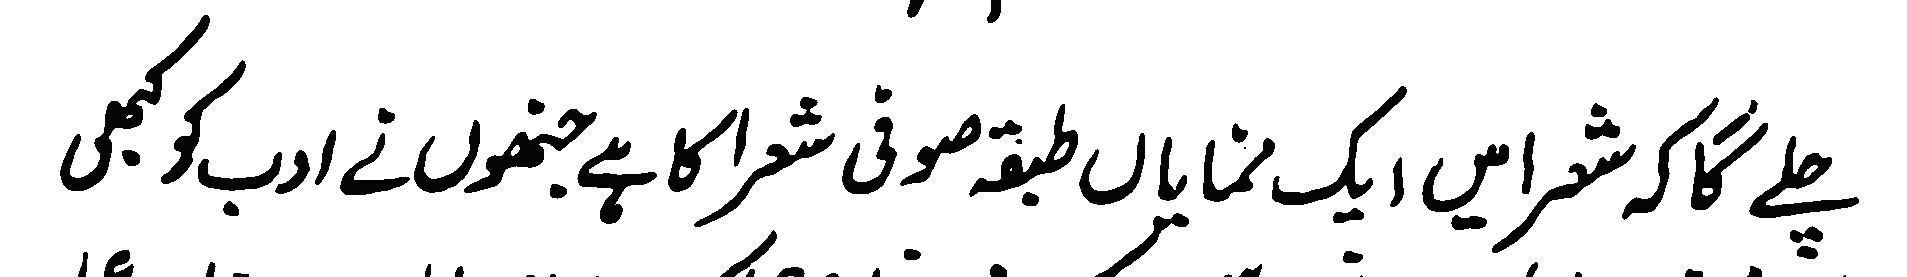 چلے گا کہ شعرا میں ایک نمایاں طبقہ صوفی شعرا کا ہے جنھوں نے ادب کو کبھی